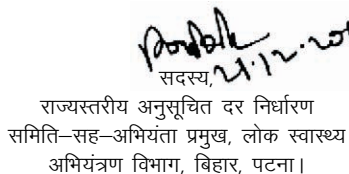 सदस्य, 21.12.20
राज्यस्तरीय अनुसूचित दर निर्धारण
समिति–सह–अभियंता प्रमुख, लोक स्वास्थ्य
अभियंत्रण विभाग, बिहार, पटना।